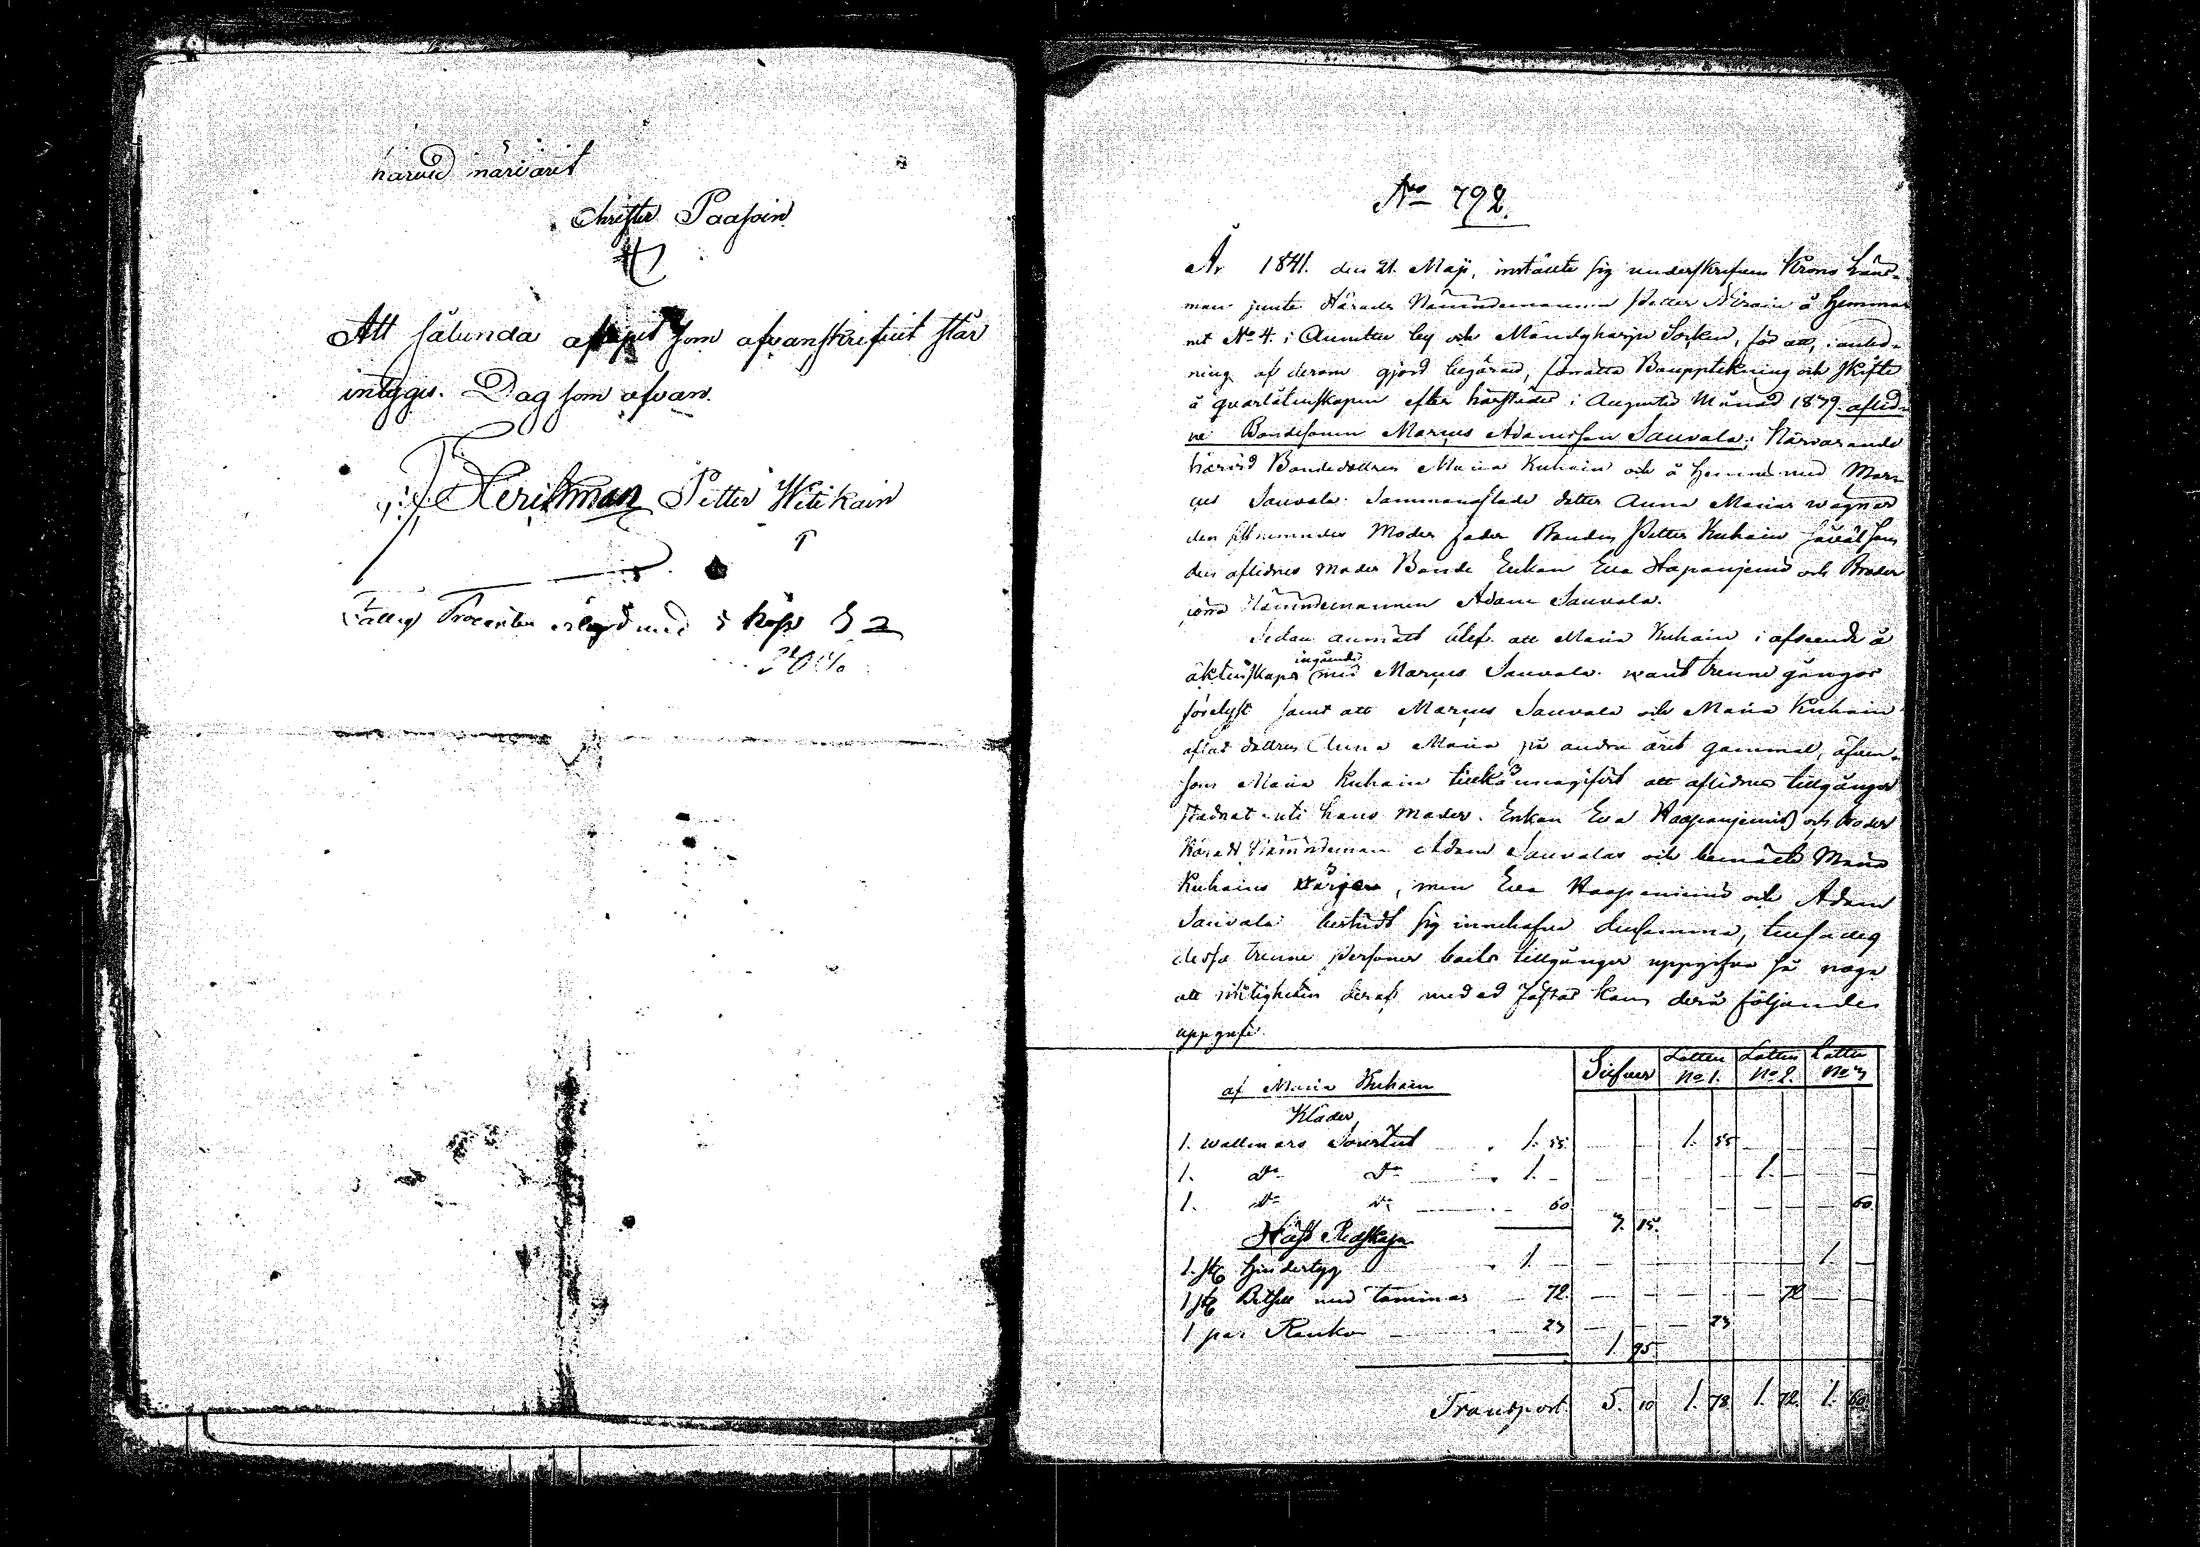 härvid närvarit
Christer Paasoin
Att sålunda som ofvanskrifvit står
intygas. Dag som ofvan.
Petter Witikain
Procenten erlagd med 5 kop S
No 792.
År 1841. den 21. Maji, instälte sig underskrifven Krono Läns-
man jemte Härads Nämndemannen Petter å Hemma
net No 4. i by och Mändyharju Socken, för att, i anled-
ning af derom gjord begäran, förrätta Bouppteckning och skifte
å qvarlåtenskapen efter härstädes i Augusti Månad 1839 aflid-
ne Bondesonen Marcus Adamsson Sauvala; Närvarande
härvid Bondedottren Maria Kuhain och å Hennes med Mar-
cus Sauvala sammanaflade dotter Anna Marias wägnar
den sistnemndes Moder fader Bonden Petter Kuhain såväl som
den aflidnes Moder Bonde Enkan Eva Haapaniemi och Broder
Nämndemannen Adam Sauvala.
Sedan anmält blef att Maria Kuhain i afseende å
ingående
äktenskap med Marcus Sauvala warit trenne gånger
förelyst samt att Marcus Sauvala och Maria Kuhain
aflat dottren Anna Maria på andra året gammal, äfven-
som Maria Kuhain tillkännagifvit att aflidnes tillgångar
stadnat uti hans Moders Enkan Eva Haapaniemis och broder
Härads Nämndeman Adam Sauvalas och bemälte Maria
Kuhains wärjor, men Eva Haapaniemi och Adam
Sauvala bestridt sig innehafva densamma, tillsades
dessa trenne Personer boets tillgångar uppgifva så noga
att riktigheten deraf med ed fästas kan, derå följande
uppgafs.
af Maria Kuhain
Silfver Lotten No 1. Lotten No 2. Lotten No 3
Kläder
1. wallmars Sourtut 1. 55. 1. 55
1. Do Do 1. 1.
1. Do Do 60 60.
3. 15.
Häst Redskap
1. st. Hindertyg 1. 1.
1 st. Betsell med tömmar 72. 72
1 par Ranko 23 23
1. 95.
Transport 5. 10 1. 78 1. 72. 1. 60.